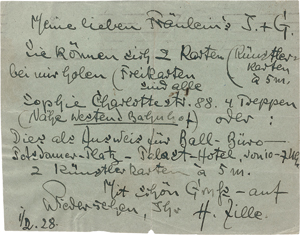 Meine lieben Fräulein's J. + G.
Sie können sich 2 Karten (Künstler-
karten
bei mir holen (Freikarten à 5 m.
sind alle
Sophie Charlottestr. 88. 4 Treppen
(Nähe Westend Bahnhof) oder:
Dies als Ausweis für Ball-Büro-
Potsdamer-Platz - Palast-Hotel
2 Künstlerkarten à 5 m.
Mit schön Gruß - auf
Wiedersehen, Ihr H. Zille.
28.